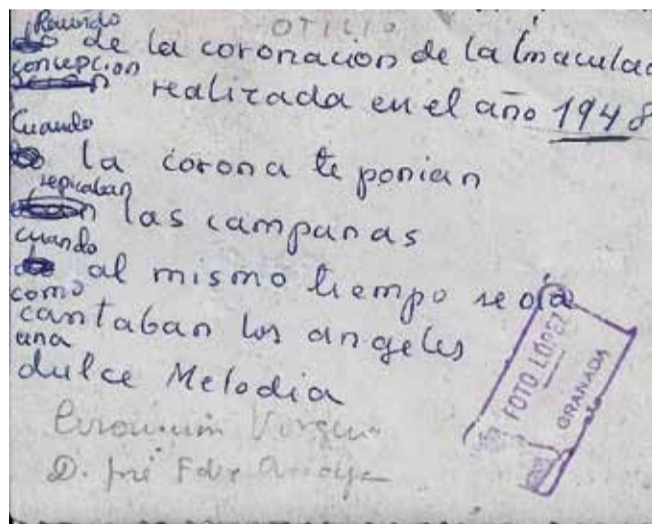 OTILIO
Recuerdo
de la coronacion de la Inmaculad
concepcion
realizada en el año 1948
Cuando
la corona te ponian
repicaban
las campanas
cuando
al mismo tiempo se oía
como
cantaban los angeles
una
dulce Melodia
Coronación Virgen
D. José Fdez
FOTO LÓPEZ
GRANADA